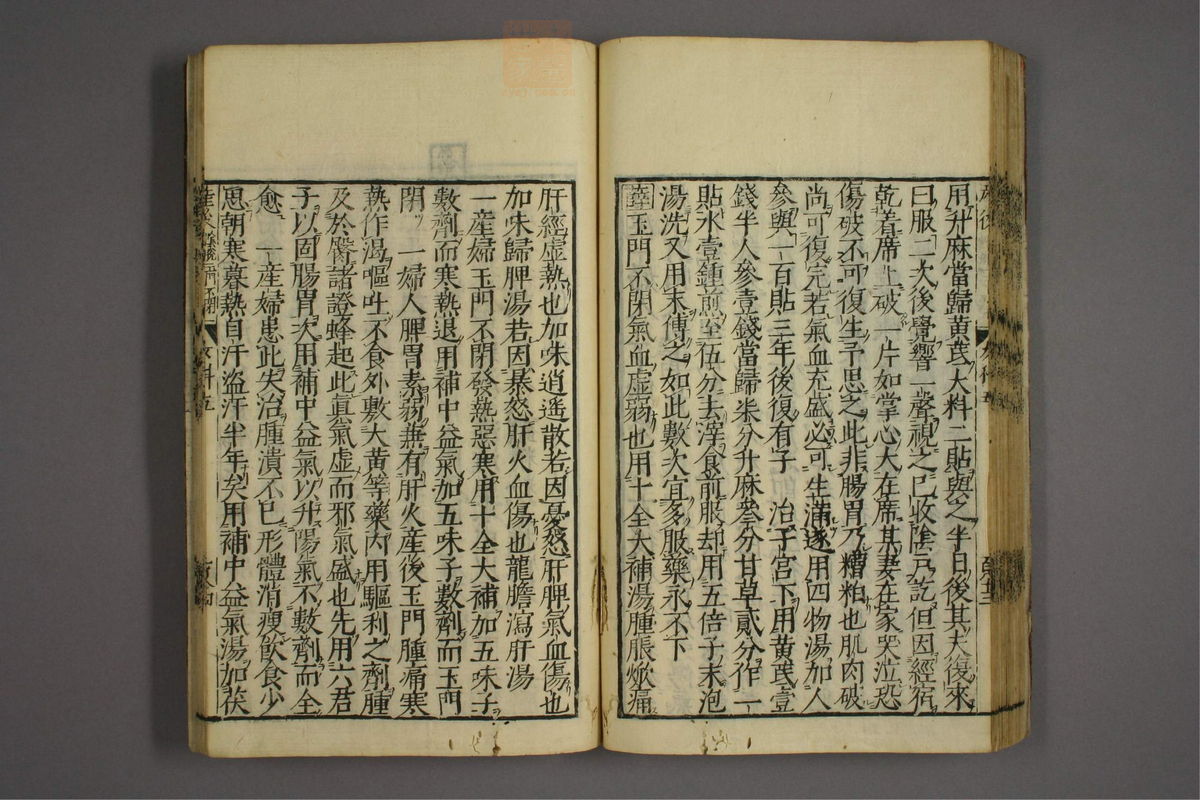 用升麻當歸黃芪大料二貼與之半日後其夫復來
曰服二次後覺響一聲視之已收陰乃訖但因經宿
乾着席上破一片如掌心大在席其妻在家哭泣恐
傷破不可復生予思之此非腸胃乃糟粕也肌肉破
尚可復完若氣血充盛必可生滿遂用四物湯加人
參與一百貼三年後復有子 治子宮下用黃芪壹
錢半人參壹錢當歸柒分升麻參分甘草貳分作一
貼水壹鍾煎至伍分去滓食前服却用五倍子末泡
湯洗又用末傅之如此數次宜多服藥永不下
薛玉門不閉氣血虛弱也用十全大補湯腫脹焮痛
肝經虛熱也加味逍遙散若因憂怒肝脾氣血傷也
加味歸脾湯若因暴怒肝火血傷也龍膽瀉肝湯
一產婦玉門不閉發熱惡寒用十全大補加五味子
數劑而寒熱退用補中益氣加五味子數劑而玉門
閉 一婦人脾胃素弱兼有肝火產後玉門腫痛寒
熱作渴嘔吐不食外敷大黃等藥內用驅利之劑腫
及於臀諸證蜂起此真氣虛而邪氣盛也先用六君
子以固腸胃次用補中益氣以升陽氣不數劑而全
愈 一產婦患此失治腫潰不已形體消瘦飲食少
思朝寒暮熱自汗盜汗半年矣用補中益氣湯加茯